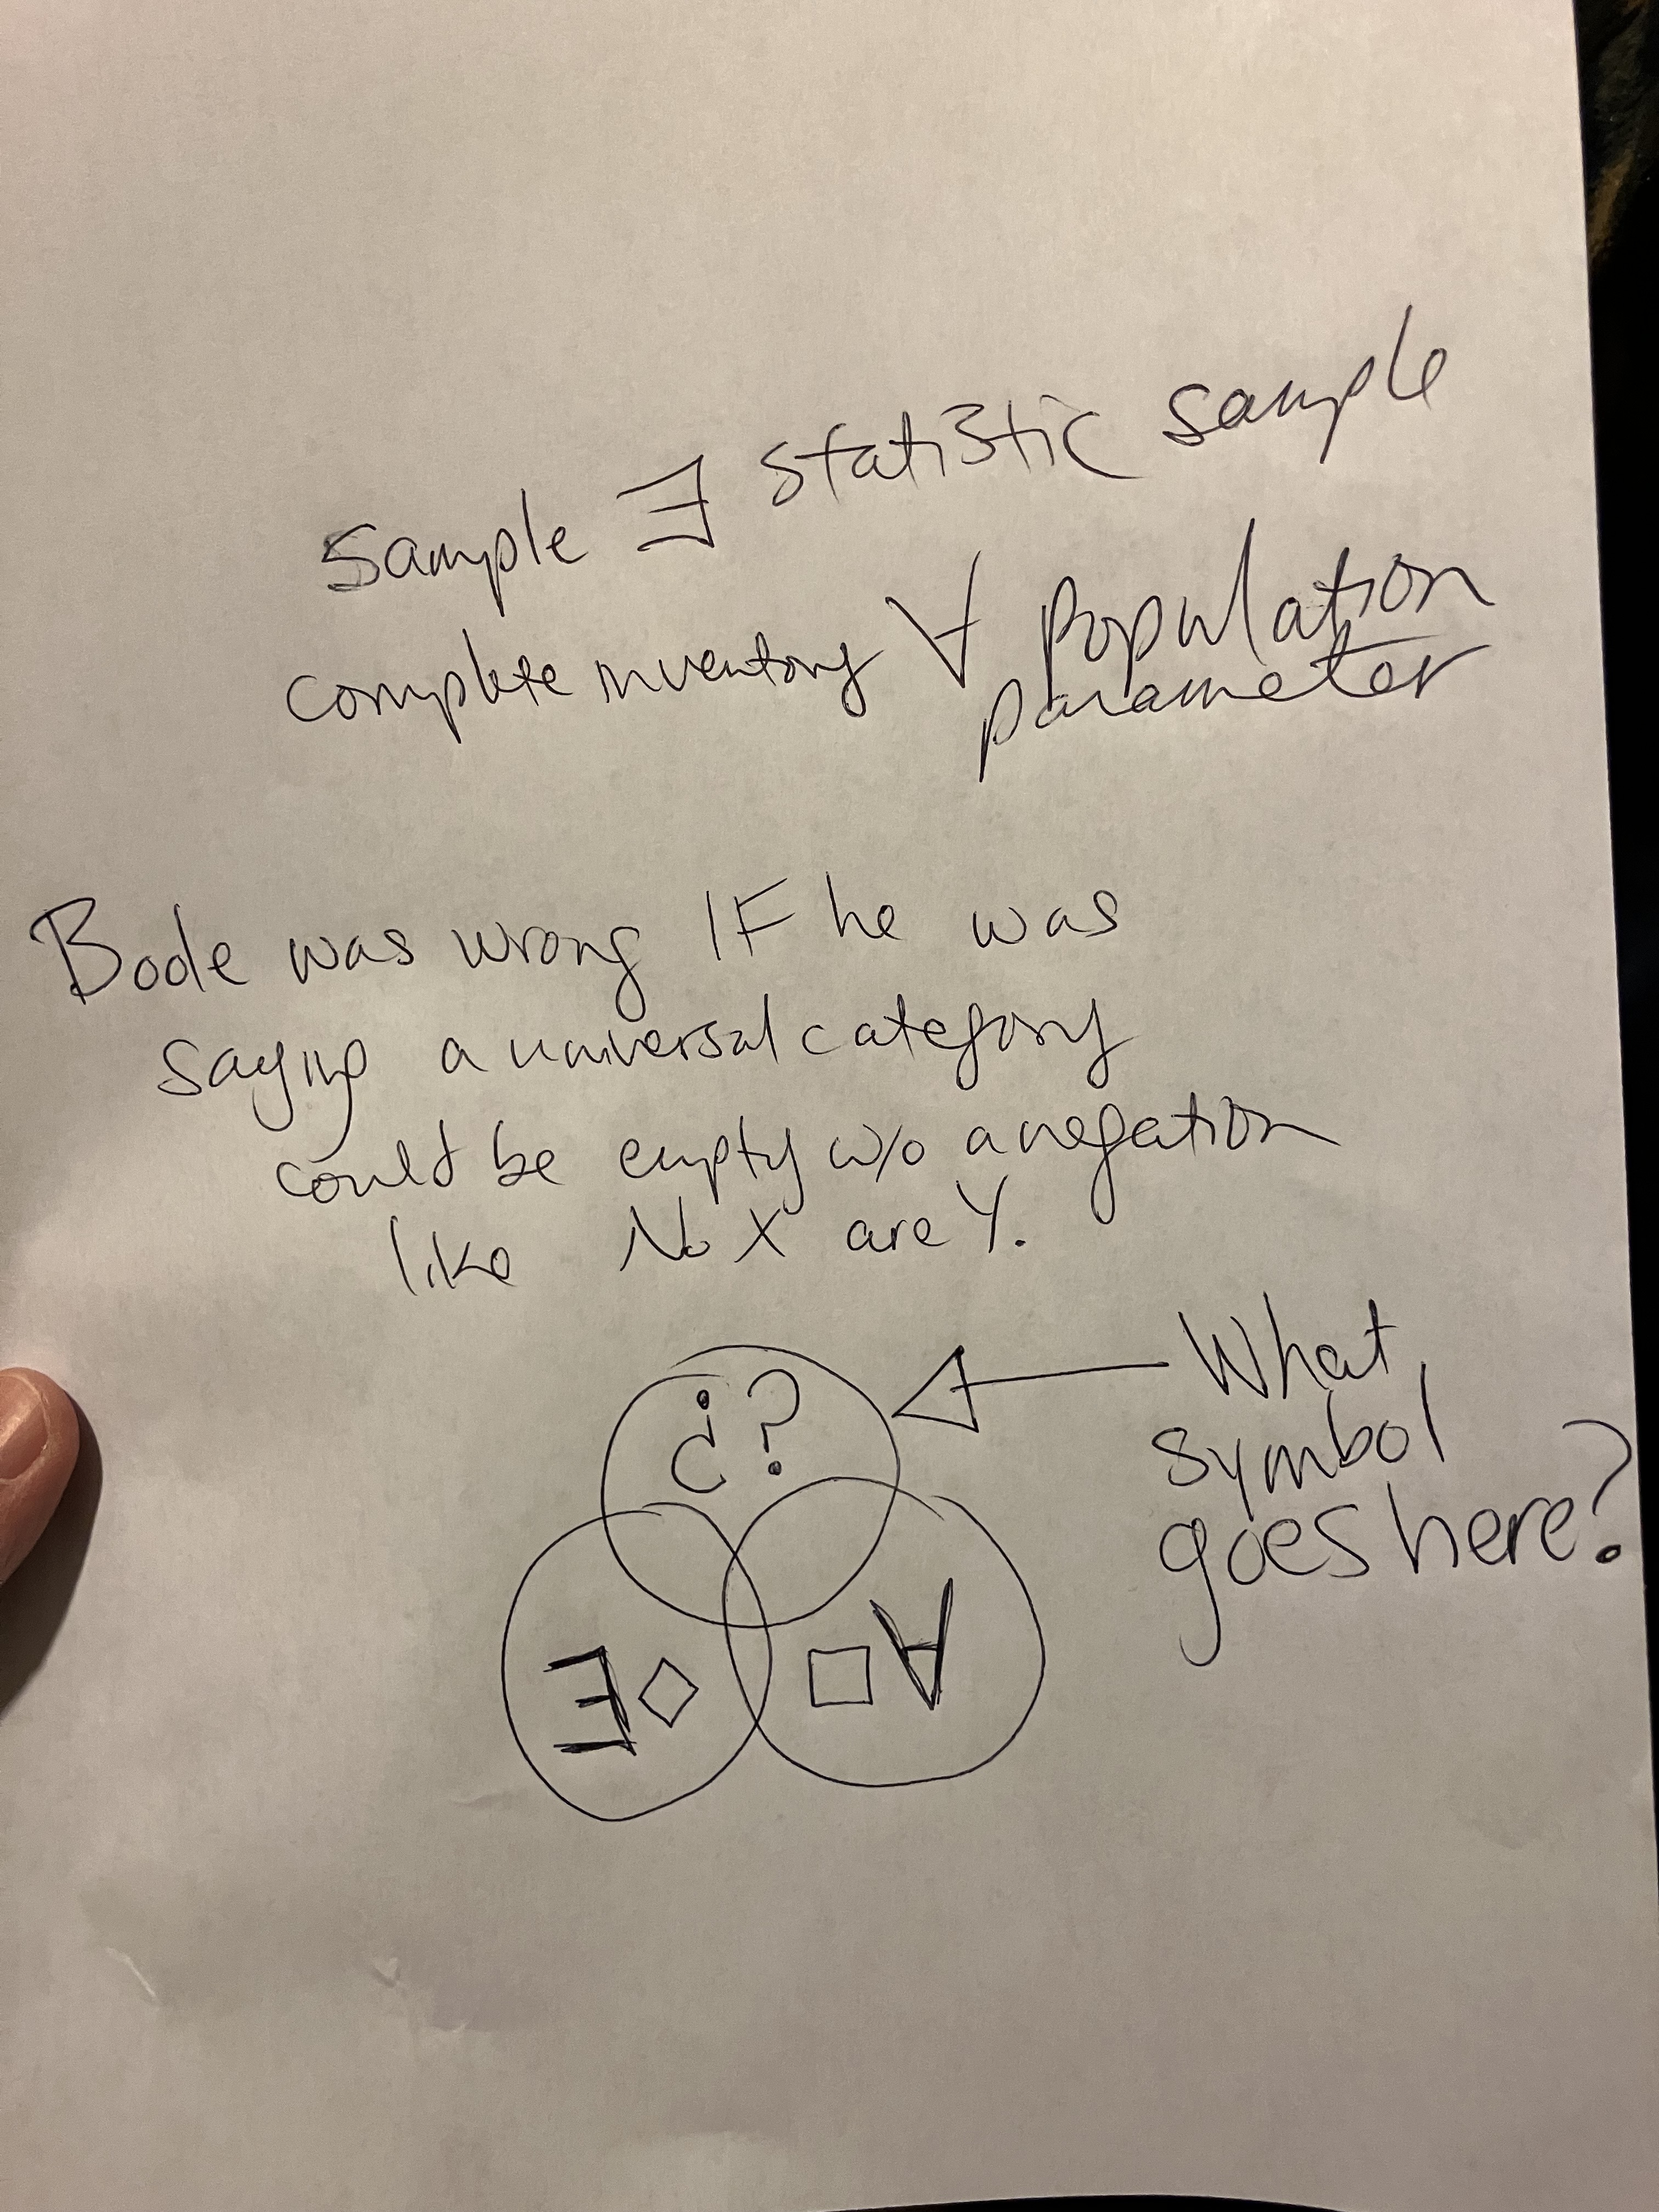 Sample ∃ statistic sample
complete inventory ∀ population
parameter
Boole was wrong IF he was
saying a universal category
could be empty w/o a negation
like No X are Y.
¿?
What
symbol
goes here?
∃◇ □∀